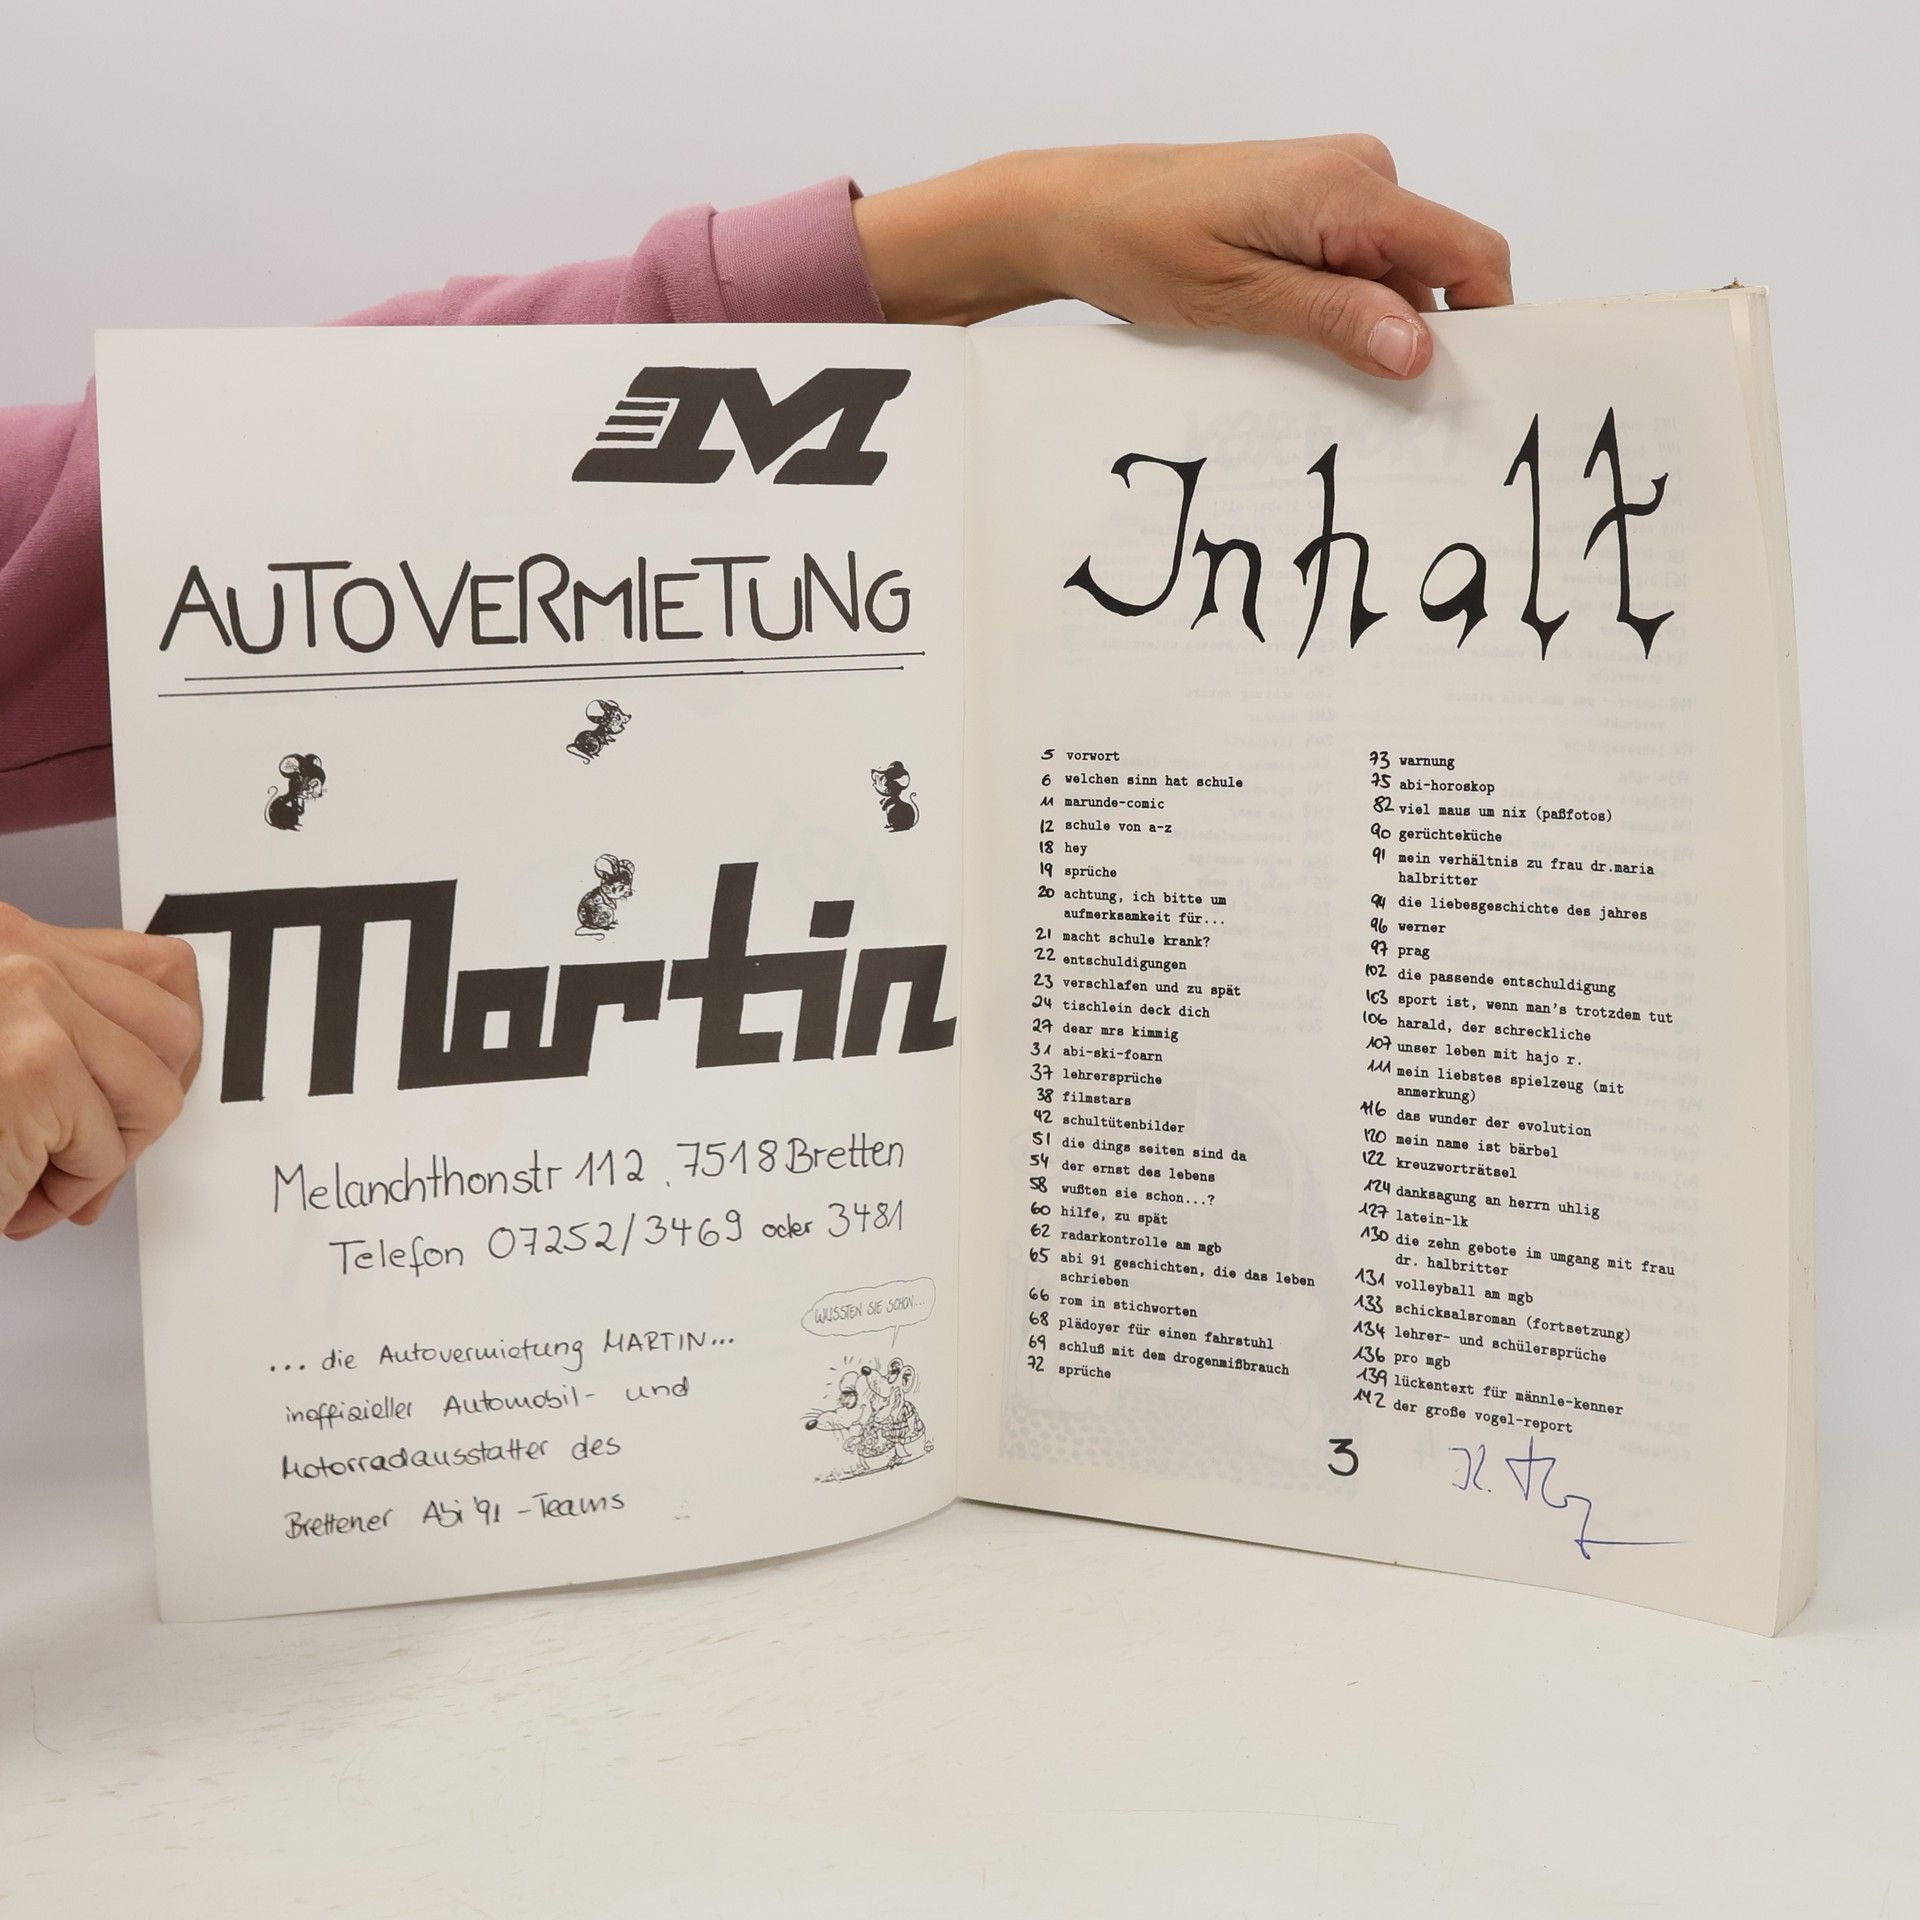 M
AUTOVERMIETUNG
Martin
Melanchthonstr 112, 7518 Bretten
Telefon 07252/3469 oder 3481
WUSSTEN SIE SCHON...
... die Autovermietung MARTIN...
inoffizieller Automobil- und
Motorradausstatter des
Brettener Abi '91 - Teams
Inhalt
5 vorwort
6 welchen sinn hat schule
11 marunde-comic
12 schule von a-z
18 hey
19 sprüche
20 achtung, ich bitte um
aufmerksamkeit für...
21 macht schule krank?
22 entschuldigungen
23 verschlafen und zu spät
24 tischlein deck dich
27 dear mrs kimmig
31 abi-ski-foarn
37 lehrersprüche
38 filmstars
42 schultütenbilder
51 die dings seiten sind da
54 der ernst des lebens
58 wußten sie schon...?
60 hilfe, zu spät
62 radarkontrolle am mgb
65 abi 91 geschichten, die das leben
schrieben
66 rom in stichworten
68 plädoyer für einen fahrstuhl
69 schluß mit dem drogenmißbrauch
72 sprüche
73 warnung
75 abi-horoskop
82 viel maus um nix (paßfotos)
90 gerüchteküche
91 mein verhältnis zu frau dr.maria
halbritter
94 die liebesgeschichte des jahres
96 werner
97 prag
102 die passende entschuldigung
103 sport ist, wenn man's trotzdem tut
106 harald, der schreckliche
107 unser leben mit hajo r.
111 mein liebstes spielzeug (mit
anmerkung)
116 das wunder der evolution
120 mein name ist bärbel
122 kreuzworträtsel
124 danksagung an herrn uhlig
127 latein-lk
130 die zehn gebote im umgang mit frau
dr. halbritter
131 volleyball am mgb
133 schicksalsroman (fortsetzung)
134 lehrer- und schülersprüche
136 pro mgb
139 lückentext für männle-kenner
142 der große vogel-report
3